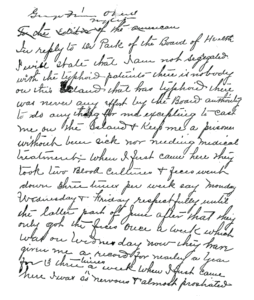 To the editor of the American
In reply to Dr Park of the Board of Health
I will state that I am not segregated
with the typhoid patients there is nobody
on this Island that has typhoid there
was never any effort by the Board authority
to do any thing for me excepting to cast
me on the Island & keep me a prisoner
without been sick nor needing medical
treatment when I first came here they
took two Blood cultures & feces went
down three times per week say Monday
Wednesday & Friday respectfully until
the latter part of June after that they
only got the feces once a week which
was on Wednesday now they have
given me a record for nearly a year
for three times a week when I first came
here I was so nervous & almost prostrated